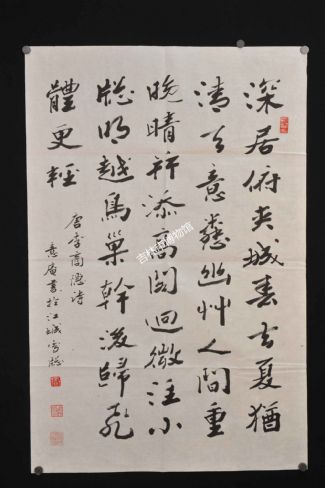 深居俯夾城春去夏猶
清天意憐幽艸人間重
晚晴并添高閣迥微注小
牕明越鳥巢幹後歸飛
體更輕
唐李商隱詩
書於江城
吉林市博物馆